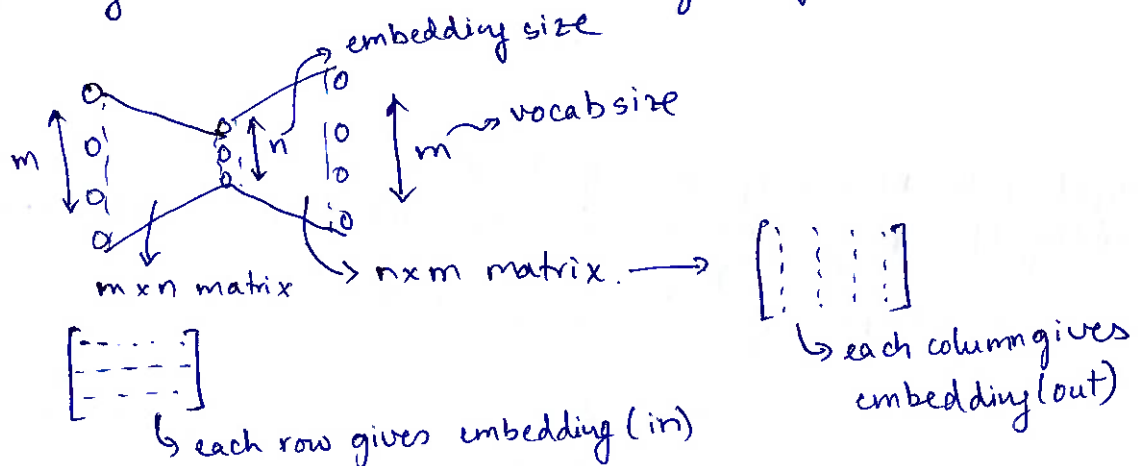 embedding size
m
n
m
vocab size
m x n matrix
n x m matrix.
each column gives
embedding (out)
each row gives embedding (in)